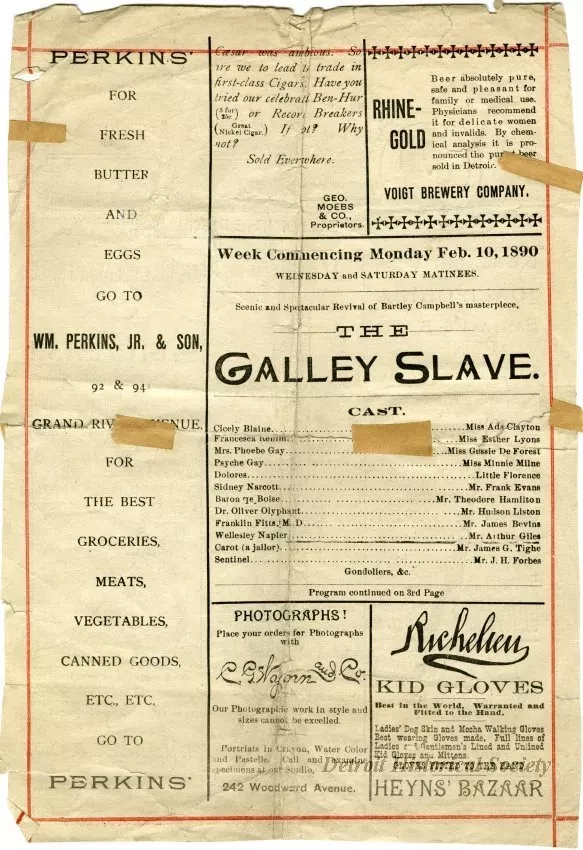 PERKINS'
FOR
FRESH
BUTTER
AND
EGGS
GO TO
WM. PERKINS, JR. & SON,
92 & 94
GRAND RIV ENUE.
FOR
THE BEST
GROCERIES,
MEATS,
VEGETABLES,
CANNED GOODS,
ETC., ETC.
GO TO
PERKINS'
Cæsar was ambious. So
re we to lead i trade in
first-class Cigars. Have you
tried our celebrat Ben-Hur
(3 for 25c) or Recor Breakers
(Great Nickel Cigar.) If ot? Why
not?
Sold Everwhere.
GEO.
MOEBS
& CO.,
Proprietors.
RHINE-
GOLD
Beer absolutely pure,
safe and pleasant for
family or medical use.
Physicians recommend
it for delicate women
and invalids. By chem-
ical analysis it is pro-
nounced the pu t beer
sold in Detroit.
VOIGT BREWERY COMPANY.
Week Commencing Monday Feb. 10, 1890
WEDNESDAY and SATURDAY MATINEES.
Scenic and Spectacular Revival of Bartley Campbell's masterpiece,
THE
GALLEY SLAVE.
CAST.
Cicely Blaine Miss Ada Clayton
Francesca Miss Esther Lyons
Mrs. Phoebe Gay Miss Gussie De Forest
Psyche Gay Miss Minnie Milne
Dolores Little Florence
Sidney Narcott Mr. Frank Evans
Baron Le Boise Mr. Theodore Hamilton
Dr. Oliver Olyphant Mr. Hudson Liston
Franklin Fitts, M. D Mr. James Bevins
Wellesley Napier Mr. Arthur Giles
Carot (a jailor) Mr. James G. Tighe
Sentinel Mr. J. H. Forbes
Gondoliers, &c.
Program continued on 3rd Page
PHOTOGRAPHS!
Place your orders for Photographs
with
and Co.
Our Photographic work in style and
sizes cannot be excelled.
Portriats in Crayon, Water Color
and Pastelle. Call and examine
specimens at our Studio,
242 Woodward Avenue.
Richelieu
KID GLOVES
Best in the World, Warranted and
Fitted to the Hand.
Ladies' Dog Skin and Mocha Walking Gloves
Best wearing Gloves made. Full lines of
Ladies and Gentlemen's Lined and Unlined
Kid Gloves and Mittens.
GLOVES FITTED TO THE HAND
HEYNS' BAZAAR
Detroit Historical Society